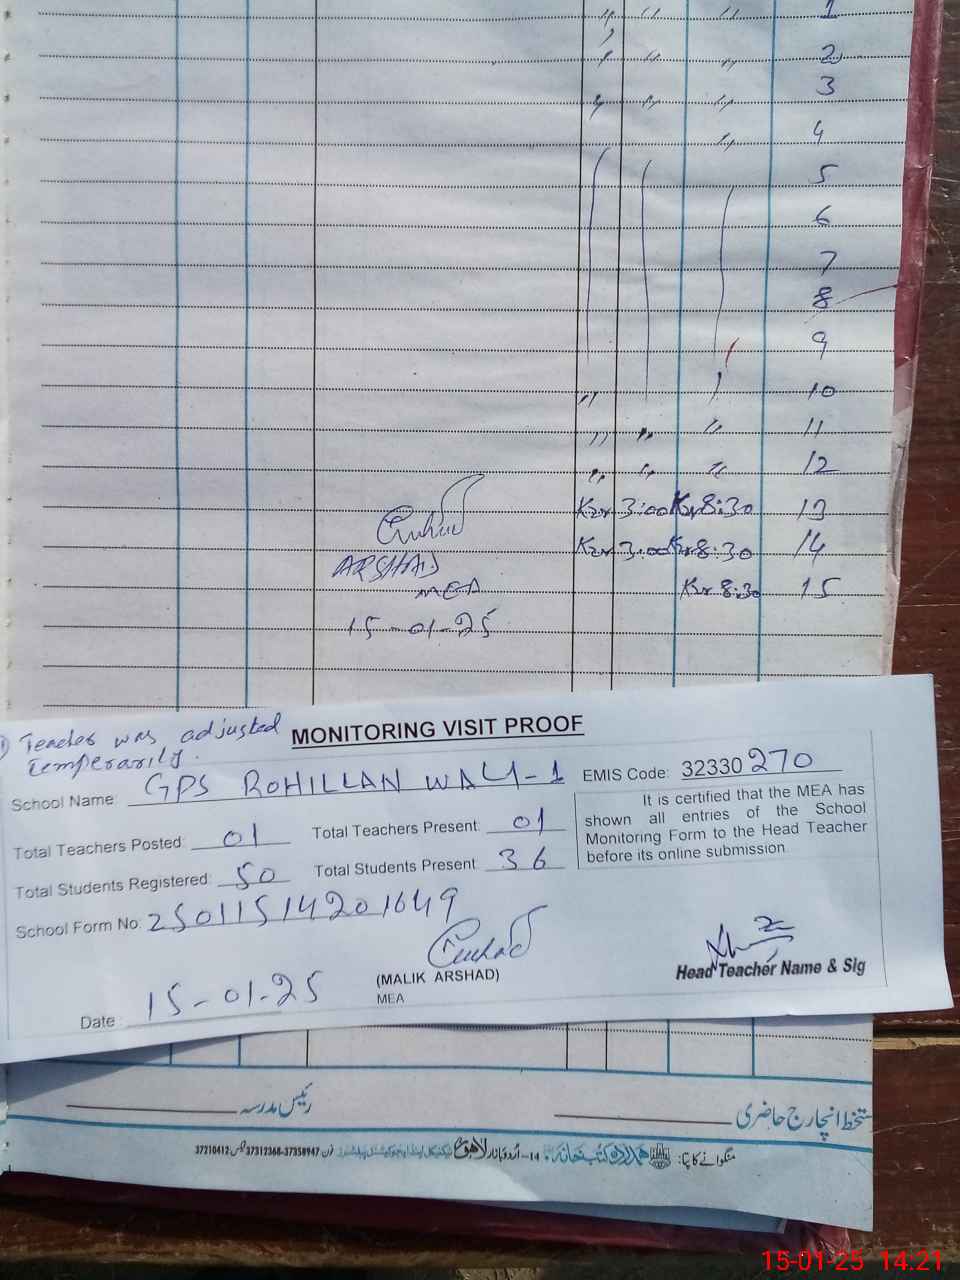 〃 〃 〃 1
〃 〃 〃 2
〃 〃 〃 3
〃 4
5
6
7
8
9
〃 10
〃 〃 〃 11
〃 〃 〃 12
3:00 8:30 13
3:00 8:30 14
8:30 15
ARSHAD
MEA
15-01-25
Teacher was adjusted
Temperarily.
MONITORING VISIT PROOF
School Name: GPS ROHILLAN WALI-1
EMIS Code: 32330270
Total Teachers Posted: 01 Total Teachers Present: 01
Total Students Registered: 50 Total Students Present 36
School Form No: 25011514201649
It is certified that the MEA has
shown all entries of the School
Monitoring Form to the Head Teacher
before its online submission.
(MALIK ARSHAD)
MEA
Head Teacher Name & Sig
Date: 15-01-25
رئیس مدرسہ
دستخط انچارج حاضری
منگوانے کا پتہ: ہمدرد کتب خانہ 14-اُردو بازار لاہور فون 37358947-37312368 فیکس 37210412
15-01-25 14:21